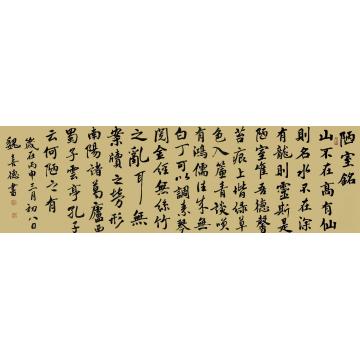 陋室銘
山不在高有仙
則名水不在深
有龍則靈斯是
陋室惟吾德馨
苔痕上堦綠草
色入簾青談笑
有鴻儒往來無
白丁可以調素琴
閱金經無絲竹
之亂耳無
案牘之勞形
南陽諸葛廬西
蜀子雲亭孔子
云何陋之有
歲在丙申三月初八日
魏喜德書